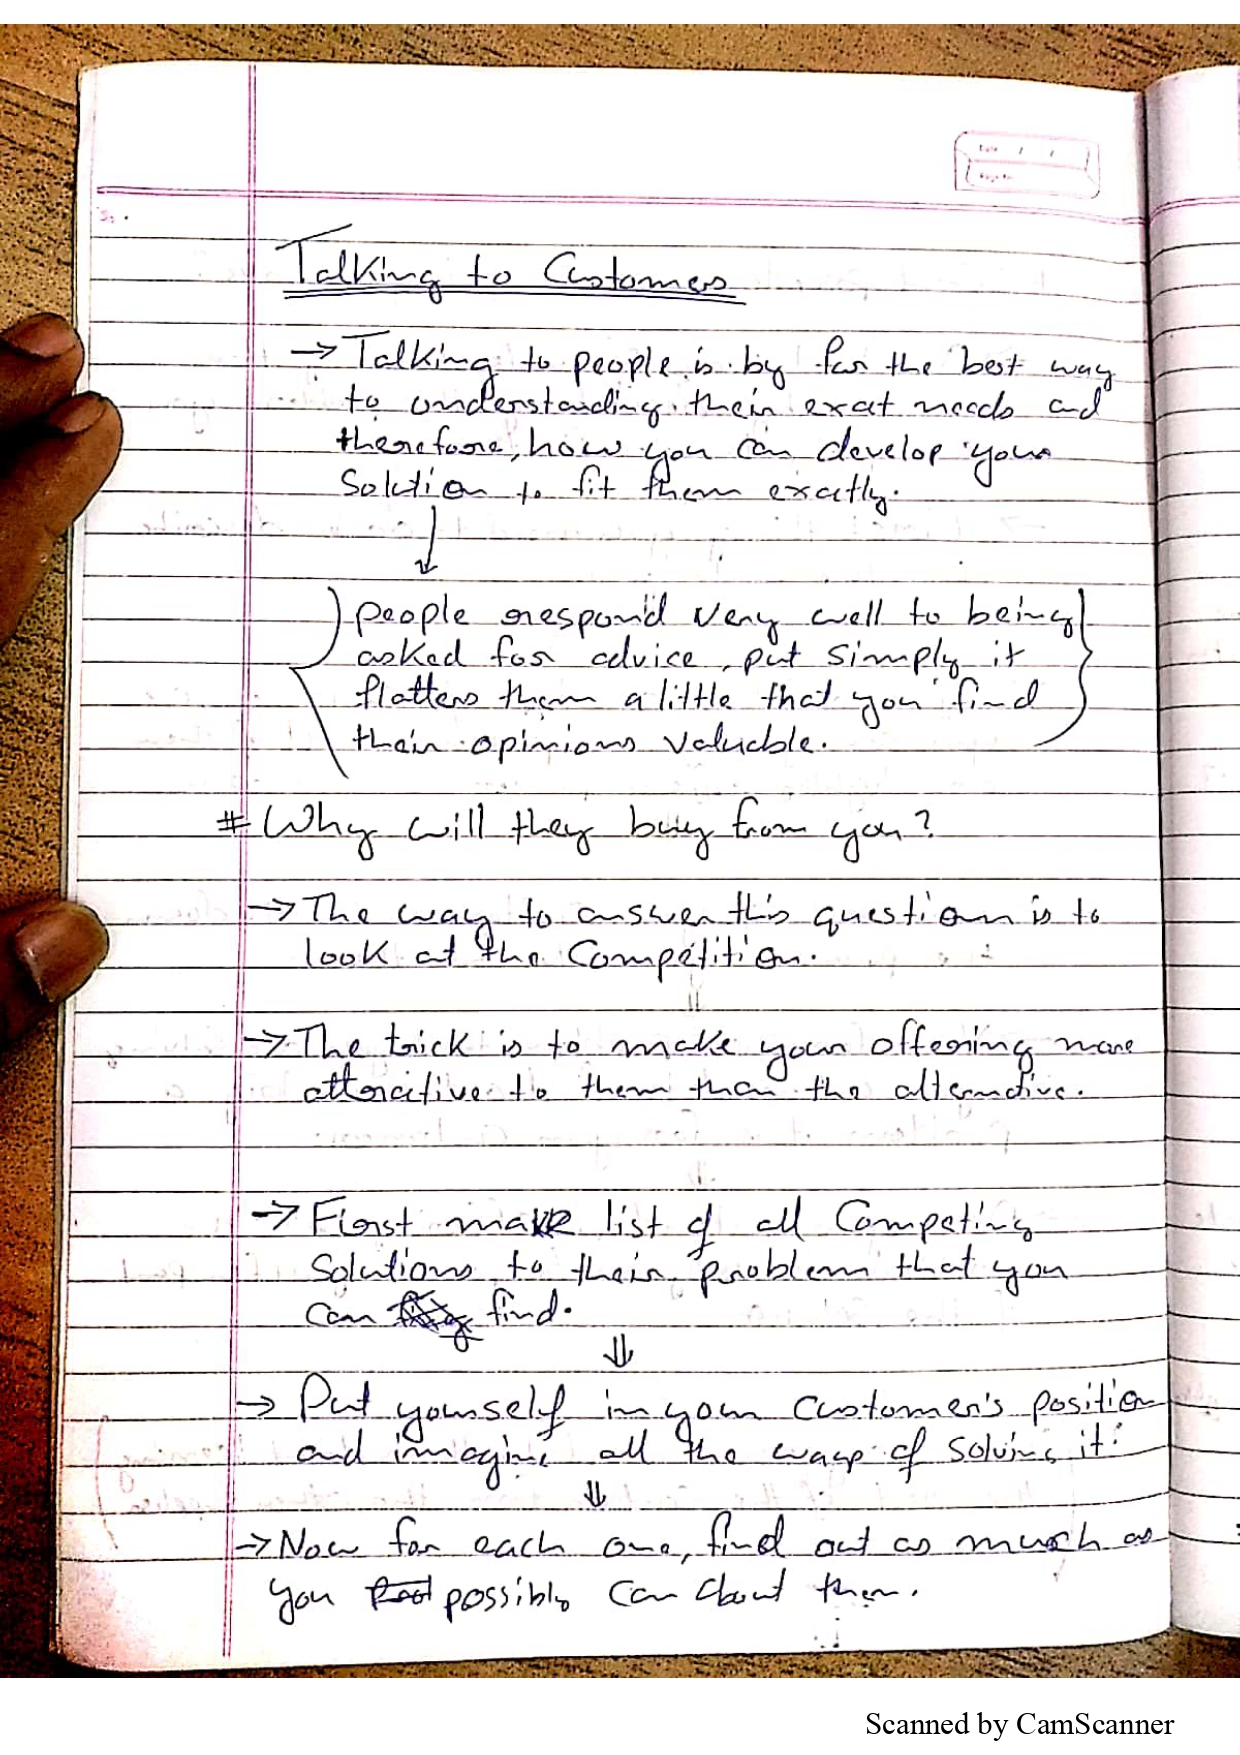 Talking to Customers
→ Talking to people is by far the best way
to understanding their exact needs and
therefore, how you can develop your
Solution to fit them exactly.
↓
people respond very well to being
asked for advice, put simply it
flatters them a little that you find
their opinions valuable.
# Why will they buy from you?
→ The way to answer this question is to
look at the Competition.
→ The trick is to make your offering more
attractive to them than the alternative.
→ First make list of all Competing
Solutions to their problem that you
can find.
⇓
→ Put yourself in your customer's position
and imagine all the ways of solving it.
⇓
→ Now for each one, find out as much as
you possibly can about them.
Scanned by CamScanner